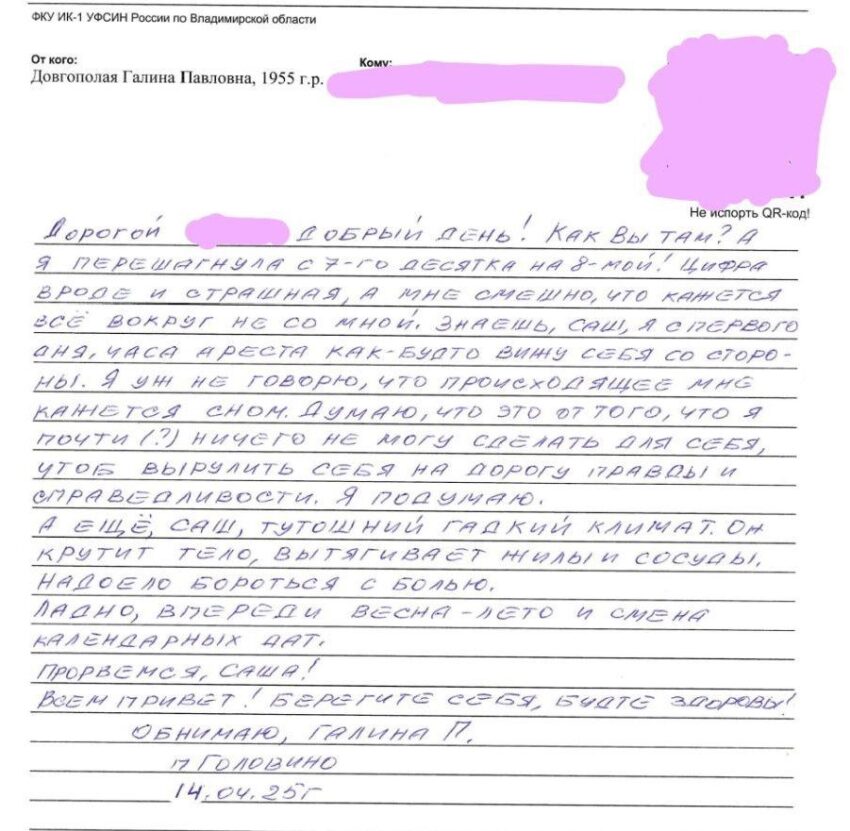 ФКУ ИК-1 УФСИН России по Владимирской области
От кого:
Кому:
Довгополая Галина Павловна, 1955 г.р.
Не испорть QR-код!
Дорогой добрый день! Как Вы там? А
я перешагнула с 7-го десятка на 8-мой! Цифра
вроде и страшная, а мне смешно, что кажется
всё вокруг не со мной. Знаешь, Саш, я с первого
дня, часа ареста как-будто вижу себя со сторо-
ны. Я уж не говорю, что происходящее мне
кажется сном. Думаю, что это от того, что я
почти (?) ничего не могу сделать для себя,
чтоб вырулить себя на дорогу правды и
справедливости. Я подумаю.
А ещё, Саш, тутошний гадкий климат. Он
крутит тело, вытягивает жилы и сосуды.
Надоело бороться с болью.
Ладно, впереди весна-лето и смена
календарных дат.
Прорвемся, Саша!
Всем привет! Берегите себя, будте здоровы!
Обнимаю, Галина П.
п Головино
14.04.25г